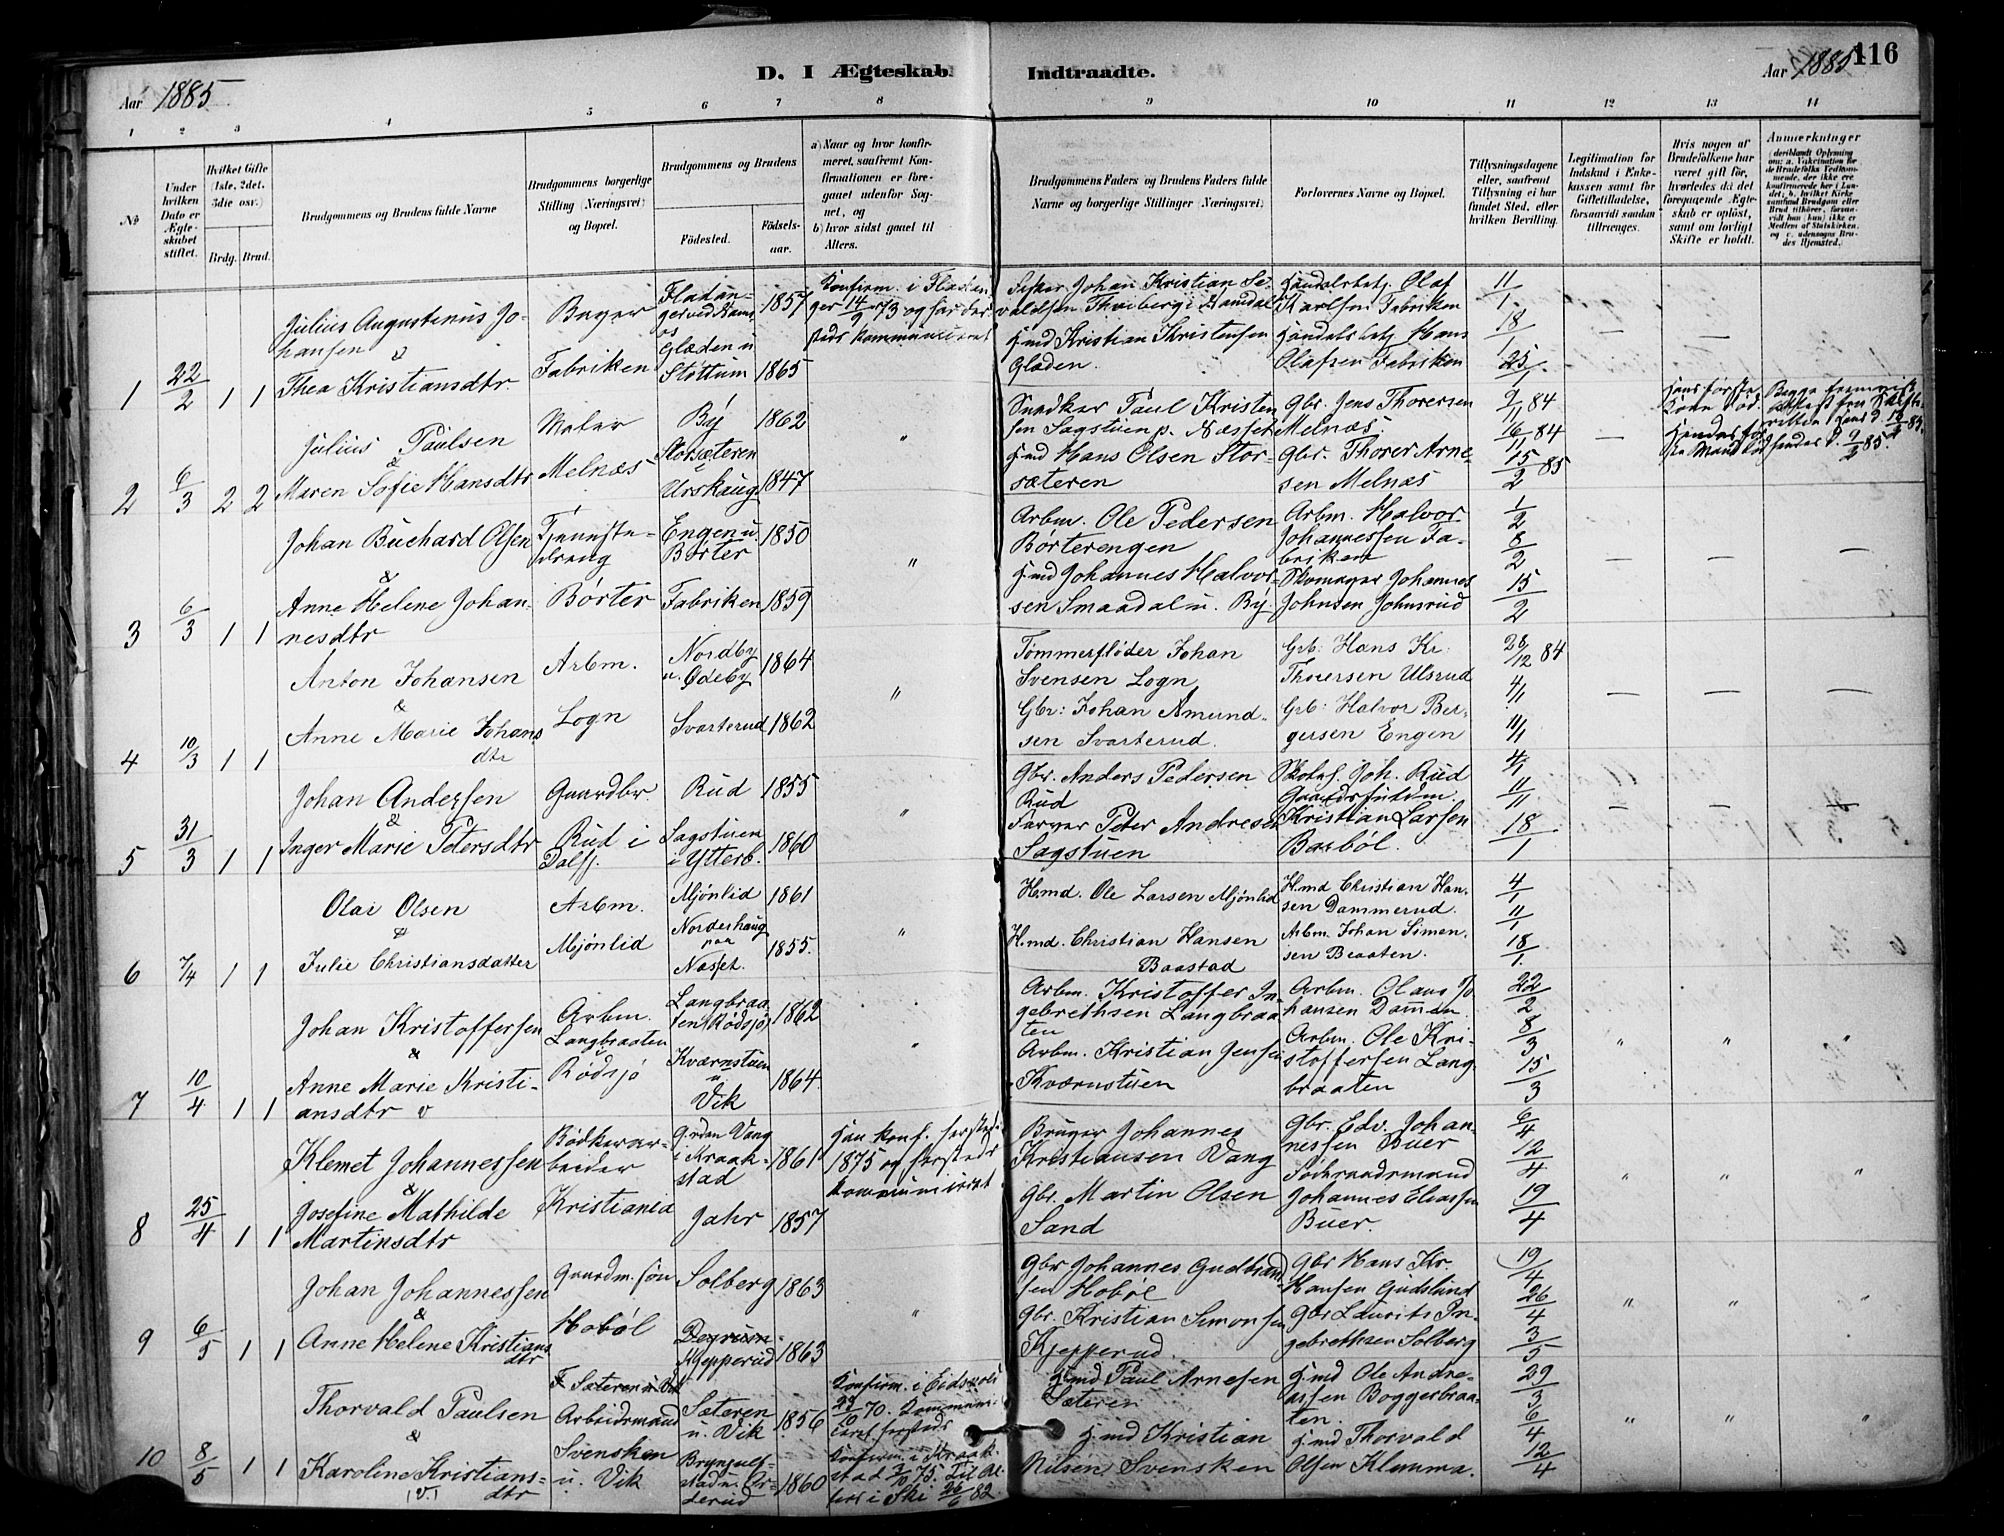 116
Aar 1885
D. I Ægteskab
Indtraadte.
Aar 1885
1 2 3 4 5 6 7 8 9 10 11 12 13 14
No
Under hvilken Dato er Ægteskabet stiftet.
Hvilket Gifte (1ste, 2det, 3die osv.)
Brdg. Brud.
Brudgommens og Brudens fulde Navne
Brudgommens borgerlige Stilling (Næringsvei) og Bopæl.
Brudgommens og Brudens
Fødested.
Fødselsaar.
a) Naar og hvor konfirmeret, saafremt Konfirmationen er foregaaet udenfor Sognet, og
b) hvor sidst gaaet til Alters.
Brudgommens Faders og Brudens Faders fulde Navne og borgerlige Stillinger (Næringsvei)
Forlovernes Navne og Bopæl.
Tillysningsdagene eller, saafremt Tillysning ei har fundet Sted, efter hvilken Bevilling.
Legitimation for Indskud i Enkekassen samt for Giftetilladelse, forsaavidt saadan tiltrænges.
Hvis nogen af Brudefolkene har været gift før, hvorledes da det foregaaende Ægteskab er opløst, samt om lovligt Skifte er holdt.
Anmerkninger
1 22/2 1 1
Julius Augustinus Johansen
&
Thea Kristiansdtr.
Fabriken
1857
Glæden u Støttum 1865
Konfirm. i
14/9 73 og har
Johan Kristian
Hmd Kristian Kristensen
Glæden.
Handelsbetj. Olaf
Karlsen Fabriken
Handelsbetj. Hans
Olafsen Fabriken
11/1 18/1 25/1
2 6/3 2 2
Julius Paulsen
&
Maren Sofie Hansdtr
Maler
Melnæs
By 1862
Storsæteren
Urskaug 1847
Snedker Paul Kristensen Sagstuen p. Næsset
Hmd Hans Olsen Storsæteren
Gbr. Jens Thoresen
Melnæs
Gbr. Thorer Arnesen Melnæs
9/11 84
16/11 84
15/2 85
Hans første Kone død.
3 6/3 1 1
Johan Buchard Olsen
&
Anne Helene Johannesdtr
Tjenestedreng
Børter
Engen u. Børter 1850
Fabriken 1859
Arbm. Ole Pedersen
Børterengen
Hmd Johannes Halvorsen Smaadal u. By.
Arbm. Halvor
Johannessen Fabriken
Skomager Johannes
Johnsen Johnsrud
1/2 8/2 15/2
4 10/3 1 1
Anton Johansen
&
Anne Marie Johansdtr
Arbm.
Logn
Nordby u. Ødeby 1864
Svarterud 1862
Tømmerfløder Johan
Svensen Logn
Gbr: Johan Amundsen Svarterud.
Grb: Hans Kr.
Thoresen Ulsrud
Grb: Halvor Bergersen Engen
28/12 84
4/1
11/1
5 31/3 1 1
Johan Andersen
&
Inger Marie Petersdtr
Gaardbr.
Rud i Dalsj.
Rud 1855
Sagstuen i Ytterb. 1860
Gbr. Anders Pedersen
Rud
Farver Peter Andresen
Sagstuen
Joh. Rud
Kristian Larsen
Barbøl.
4/1 11/11 18/1
6 7/4 1 1
Olai Olsen
&
Julie Christiansdatter
Arbm.
Mjønlid
Mjønlid 1861
Norderhaug paa Næsset. 1855.
H.md. Ole Larsen Mjønlid
H.md. Christian Hansen
Baastad
H.md Christian Hansen Dammerud.
Arbm. Johan Simensen Braaten.
4/1 11/1 18/1
7 10/4 1 1
Johan Kristoffersen
&
Anne Marie Kristiansdtr
Arbm.
Langbraaten
Rødsjø
Langbraaten Rødsjø 1862
Kværnstuen u Vik 1864
Arbm. Kristoffer Ingebrethsen Langbraaten
Arbm. Kristian Jensen
Kværnstuen
Arbm. Olaus Johansen Dammen
Arbm. Ole Kristoffersen Langbraaten
22/2 8/3 15/3
8 25/4 1 1
Klemet Johannessen
&
Josefine Mathilde
Martinsdtr
Bødkerarbeider
Kristiania
G. nden Vang i Kraakstad 1861
Jahr 1857
Han konf. fersteds
1875 og fersteds
kommuniceret.
Bruger Johannes
Kristiansen Vang
Gbr. Martin Olsen
Sand
Gbr. Edv. Johannessen Buer
Johannes Eliassen
Buer.
6/4 12/4 19/4
9 6/5 1 1
Johan Johannessen
&
Anne Helene Kristiansdtr
Gaardm. søn
Hobøl
Solberg 1863
Kjepperud 1863
Gbr Johannes Gudbrandsen Hobøl
Gbr. Kristian Simonsen
Kjepperud.
Gbr Hans Kr.
Hansen Gudslund
Gbr Laurits Ingebrethsen Solberg
19/4 26/4 3/5
10 8/5 1 1
Thorvald Paulsen
&
Karoline Kristiansdtr
F Sæteren u. Vik
Arbeidsmand
Svensken
u. Vik
Sæteren u. Vik 1856
Brynjulfstad u. Arterud 1860
Konfirm. i Eidsvold
70.
Konfirm. i Kraakstad 3/10 75. Til Alters i Ski 26/6 82.
Hmd Paul Arnesen
Sæteren
Hmd Kristian
Nilsen Svensken
Hmd Ole Andreassen Boggerbraaten.
Hmd Thorvald
Olsen Klemma.
29/3 6/4 12/4